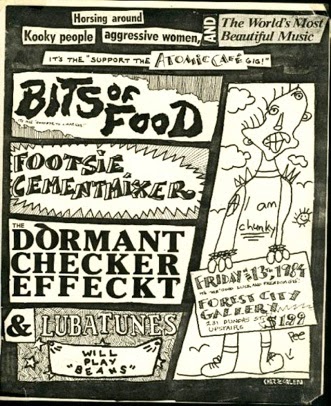 Horsing around
Kooky people aggressive women, AND The World's Most Beautiful Music
IT'S THE "SUPPORT THE ATOMIC CAFÉ GIG!"
BITS OF FOOD
FOOTSIE CEMENTMIXER
THE DORMANT
CHECKER
EFFECKT
& LUBATUNES
WILL
PLAY
"BEANS"
I am
chunky
FRIDAY 13th 1984
FOREST CITY
GALLERY
231 DUNDAS ST.
UPSTAIRS
$1.99
Pee